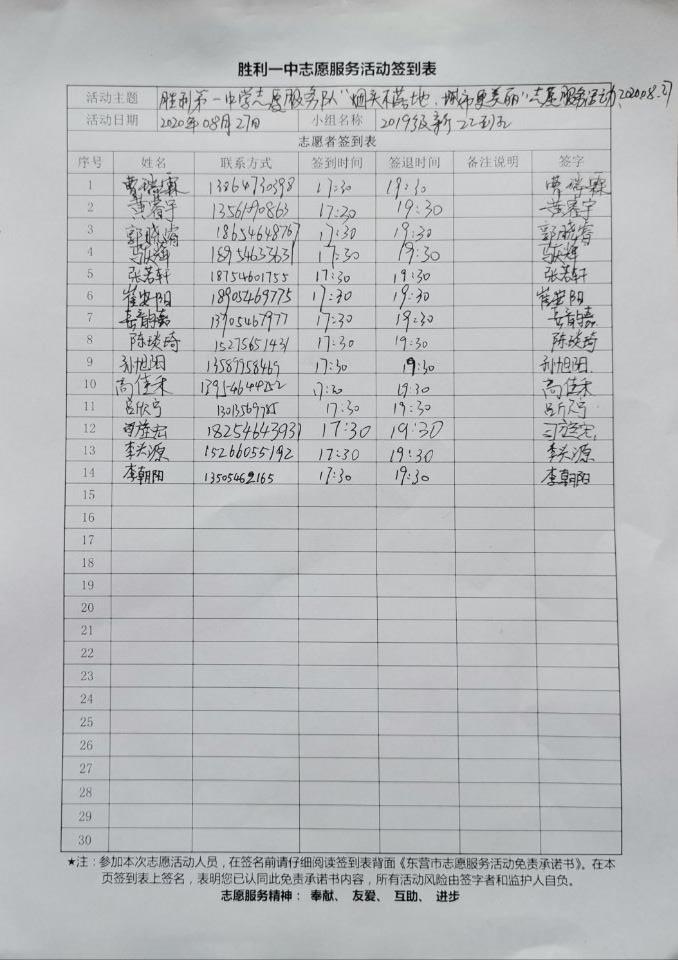 胜利一中志愿服务活动签到表
活动主题 胜利第一中学志愿服务队“烟头不落地,城市更美丽”志愿服务活动,2020.08.27
活动日期 2020年08月27日 小组名称 2019级新
志愿者签到表
序号 姓名 联系方式 签到时间 签退时间 备注说明 签字
1 曹瑞霖 13864730398 17:30 19:30 曹瑞霖
2 黄睿宇 17:30 19:30 黄睿宇
3 郭晓睿 18654648767 17:30 19:30 郭晓睿
4 17:30 19:30
5 张若轩 18754601755 17:30 19:30 张若轩
6 崔安阳 18905469775 17:30 19:30 崔安阳
7 13905467977 17:30 19:30
8 陈琰琦 15275651431 17:30 19:30 陈琰琦
9 孙旭阳 13589958469 17:30 19:30 孙旭阳
10 高佳禾 17:30 19:30 高佳禾
11 吕欣宁 17:30 19:30 吕欣宁
12 18254643931 17:30 19:30
13 李关源 15266055192 17:30 19:30 李关源
14 李朝阳 13505462165 17:30 19:30 李朝阳
15
16
17
18
19
20
21
22
23
24
25
26
27
28
29
30
★注:参加本次志愿活动人员,在签名前请仔细阅读签到表背面《东营市志愿服务活动免责承诺书》。在本
页签到表上签名,表明您已认同此免责承诺书内容,所有活动风险由签字者和监护人自负。
志愿服务精神: 奉献、 友爱、 互助、 进步